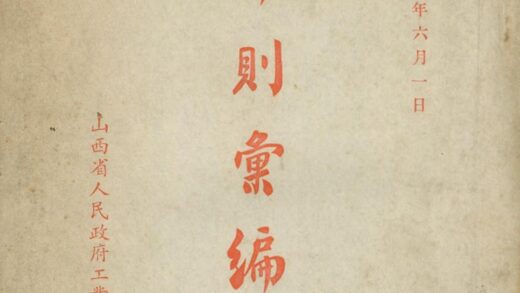 年六月一日
則彙編
山西省人民政府工業